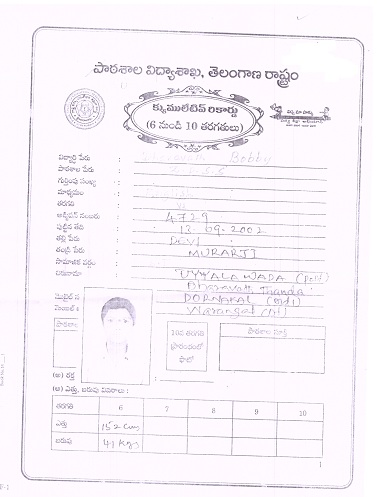 పాఠశాల విద్యాశాఖ, తెలంగాణ రాష్ట్రం
క్యుములేటివ్ రికార్డు
(6 నుండి 10 తరగతులు)
విద్యార్థి పేరు : Bobby
పాఠశాల పేరు :
గుర్తింపు సంఖ్య :
మాధ్యమం :
తరగతి : VI
అడ్మిషన్ నంబరు : 4729
పుట్టిన తేది : 13-09-2002
తల్లి పేరు : DEVI
తండ్రి పేరు : MURARJI
సామాజిక వర్గం :
చిరునామా : UYYALAWADA (Post)
Dharavath Thanda
DORNAKAL (Md)
Warangal (Dt)
మొబైల్ నం
పాఠశాల
10వ తరగతి
ప్రారంభంలో
ఫొటో
పాఠశాల
(అ) రక్త
(ఆ) ఎత్తు, బరువు వివరాలు :
తరగతి 6 7 8 9 10
ఎత్తు 152 cms
బరువు 41 Kgs
1